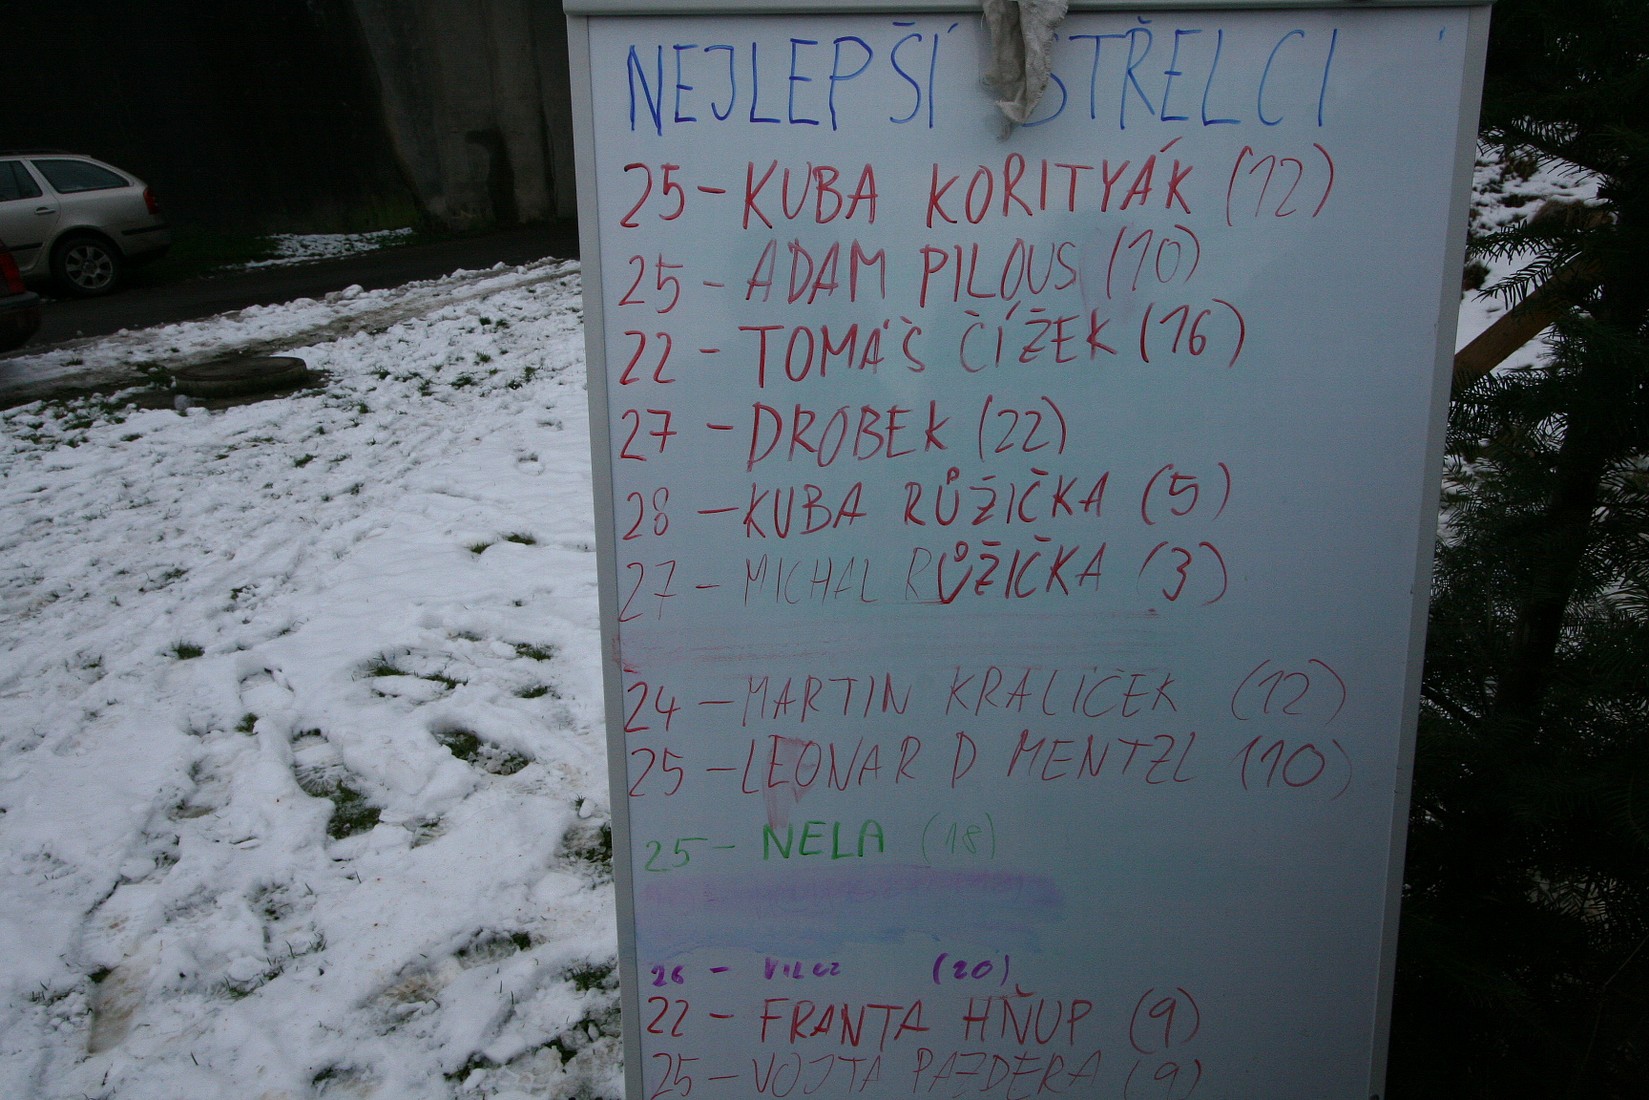 NEJLEPŠÍ STŘELCI
25 - KUBA KOŘITYÁK (12)
25 - ADAM PILOUS (10)
22 - TOMÁŠ ČÍŽEK (16)
27 - DROBEK (22)
28 - KUBA RŮŽIČKA (5)
27 - MICHAL RŮŽIČKA (3)
24 - MARTIN KRALÍČEK (12)
25 - LEONAR D MENTZL (10)
25 - NELA (18)
26 - (20)
22 - FRANTA HŇUP (9)
25 - VOJTA PAZDERA (9)